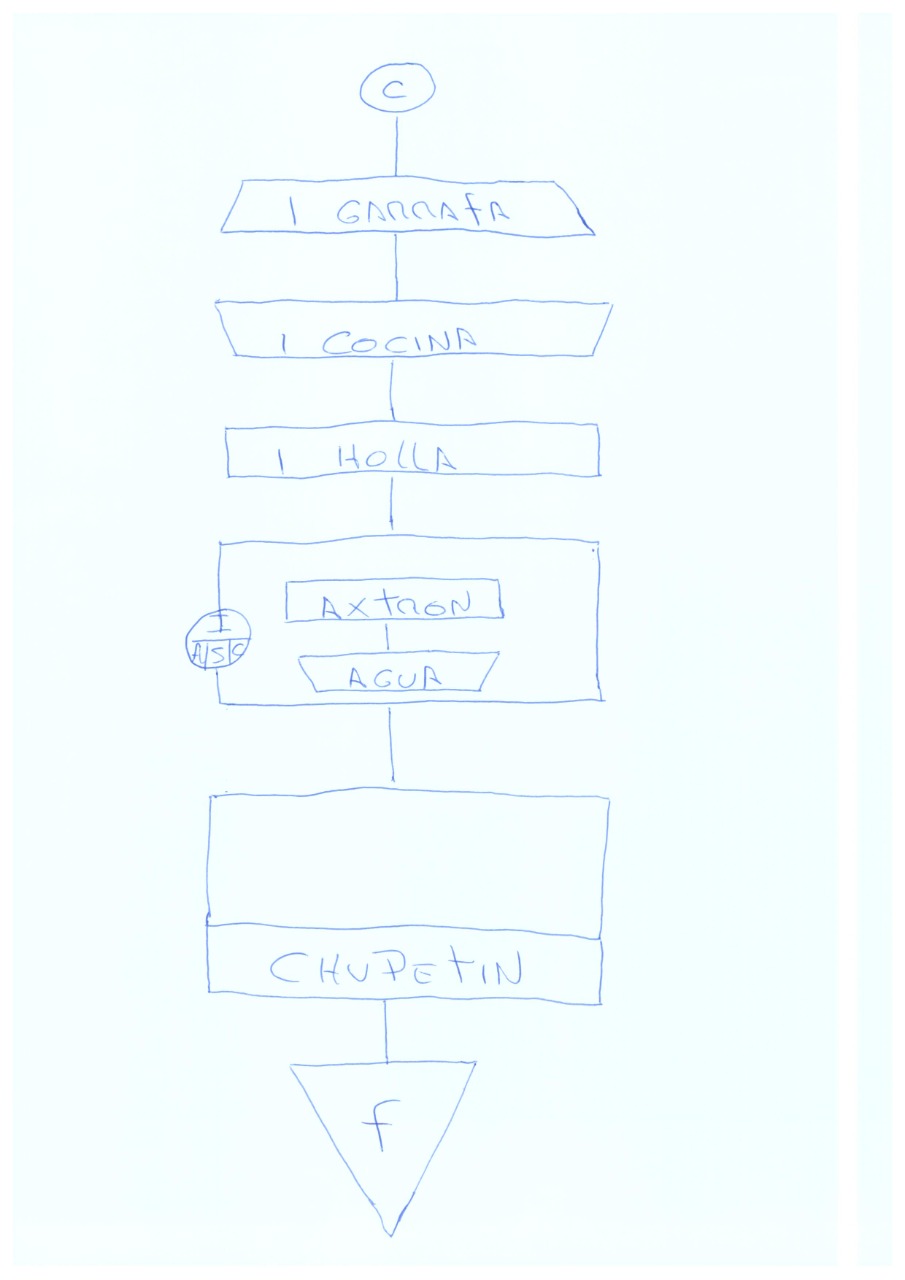 C
1 GARRAFA
1 COCINA
1 HOLLA
AXTRON
I
A/S/C
AGUA
CHUPETIN
f